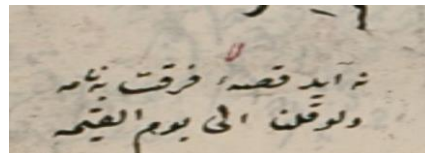 نه آید قصهٔ فرقت به نامه
ولو قلت الی یوم القیمه